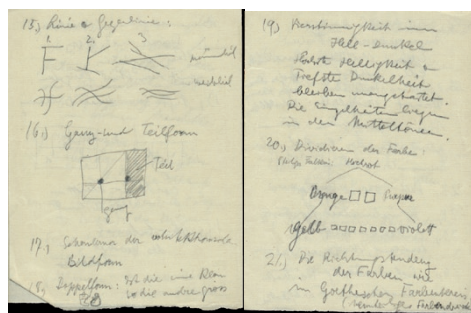 15.) Linie u Gegenlinie:
1. 2. 3
männlich
weiblich
16.) Ganz- und Teilform
Teil
ganz
17.) der
Bildform
18.) Doppelform: Ist die eine klein
so die andre gross
19.) im
Hell-Dunkel
Höchste Helligkeit u
Tiefste Dunkelheit
bleiben unangetastet.
Die Einzelheiten liegen
in den Mitteltönen.
20.) Dividieren der Farbe:
Hochrot
Orange Purpur
gelb violett
21.) Die
der Farben wie
im Goetheschen Farbenkreis